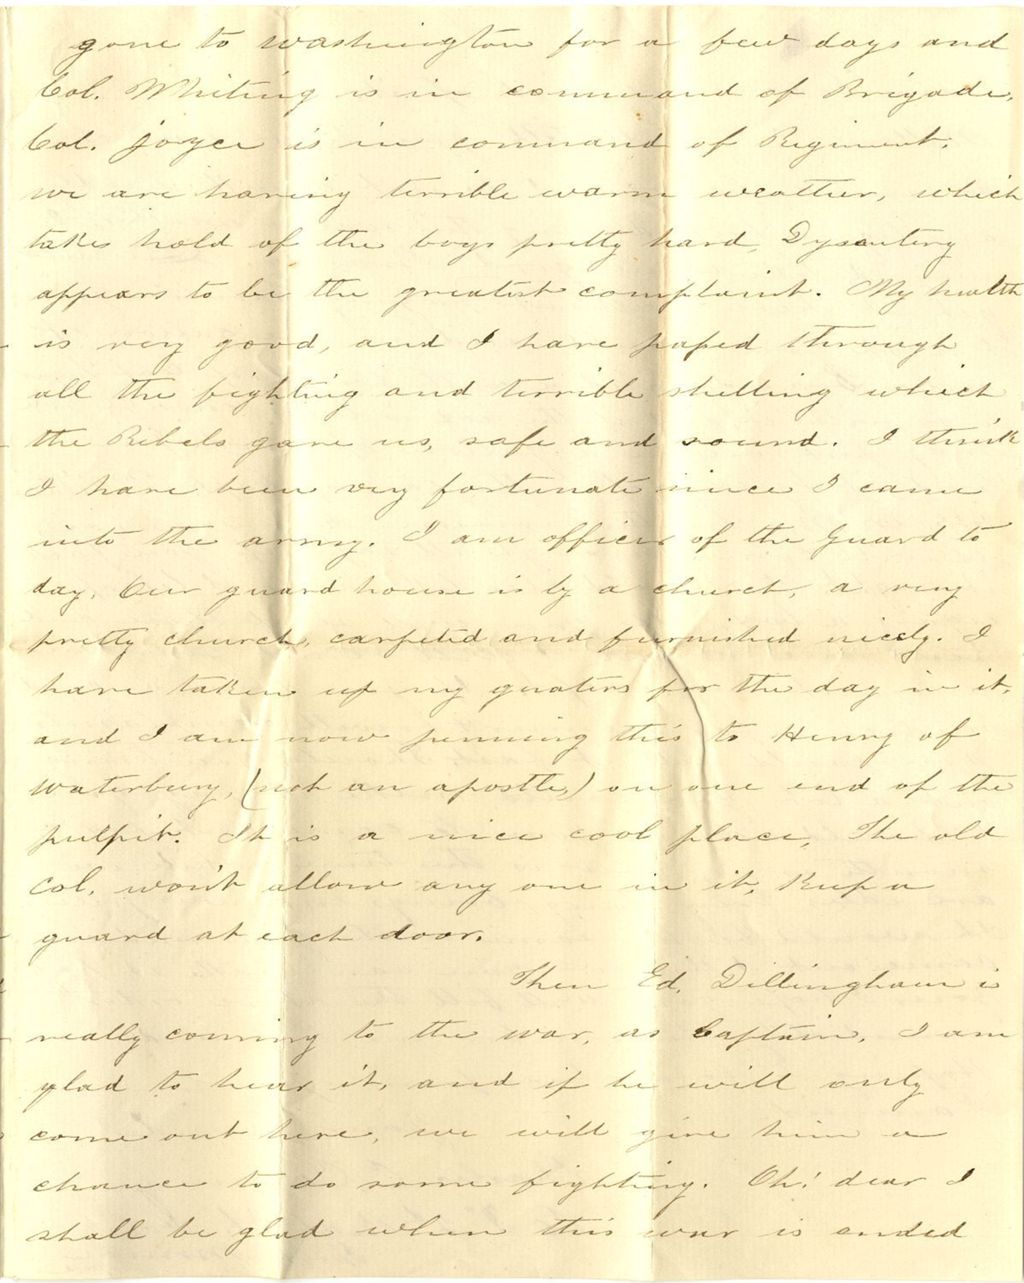 gone to Washington for a few days and
Col. Whiting is in command of Brigade,
Col. Joyce is in command of Regiment.
we are having terrible warm weather, which
takes hold of the boys pretty hard, Dysantery
appears to be the greatest complaint. My health
is very good, and I have passed through
all the fighting and terrible shelling which
the Rebels gave us, safe and sound. I think
I have been very fortunate since I came
into the army. I am officer of the Guard to
day, Our guard house is by a church, a very
pretty church, carpeted and furnished nicely. I
have taken up my quaters for the day in it,
and I am now penning this to Henry of
Waterbury, (not an apostle,) on one end of the
pulpit. It is a nice cool place, The old
Col. won't allow any one in it, Keep a
guard at each door.
Then Ed. Dillingham is
really coming to the war, as Captain, I am
glad to hear it, and if he will only
come out here, we will give him a
chance to do some fighting. Oh! dear I
shall be glad when this war is ended